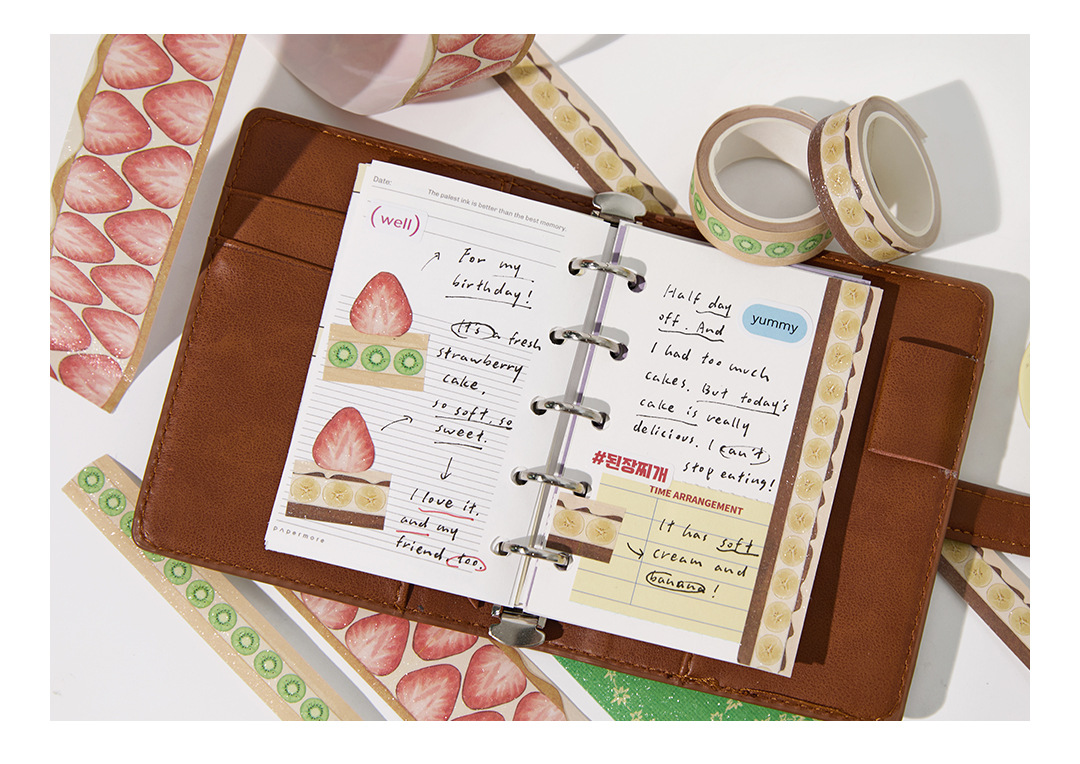 Date:
The palest ink is better than the best memory.
(well)
For my
birthday!
It's a fresh
strawberry
cake,
so soft, so
sweet.
I love it,
and my
friend too.
papermore
Half day
off. And
yummy
I had too much
cakes. But today's
cake is really
delicious. I can't
stop eating!
#된장찌개
TIME ARRANGEMENT
It has soft
cream and
banana!